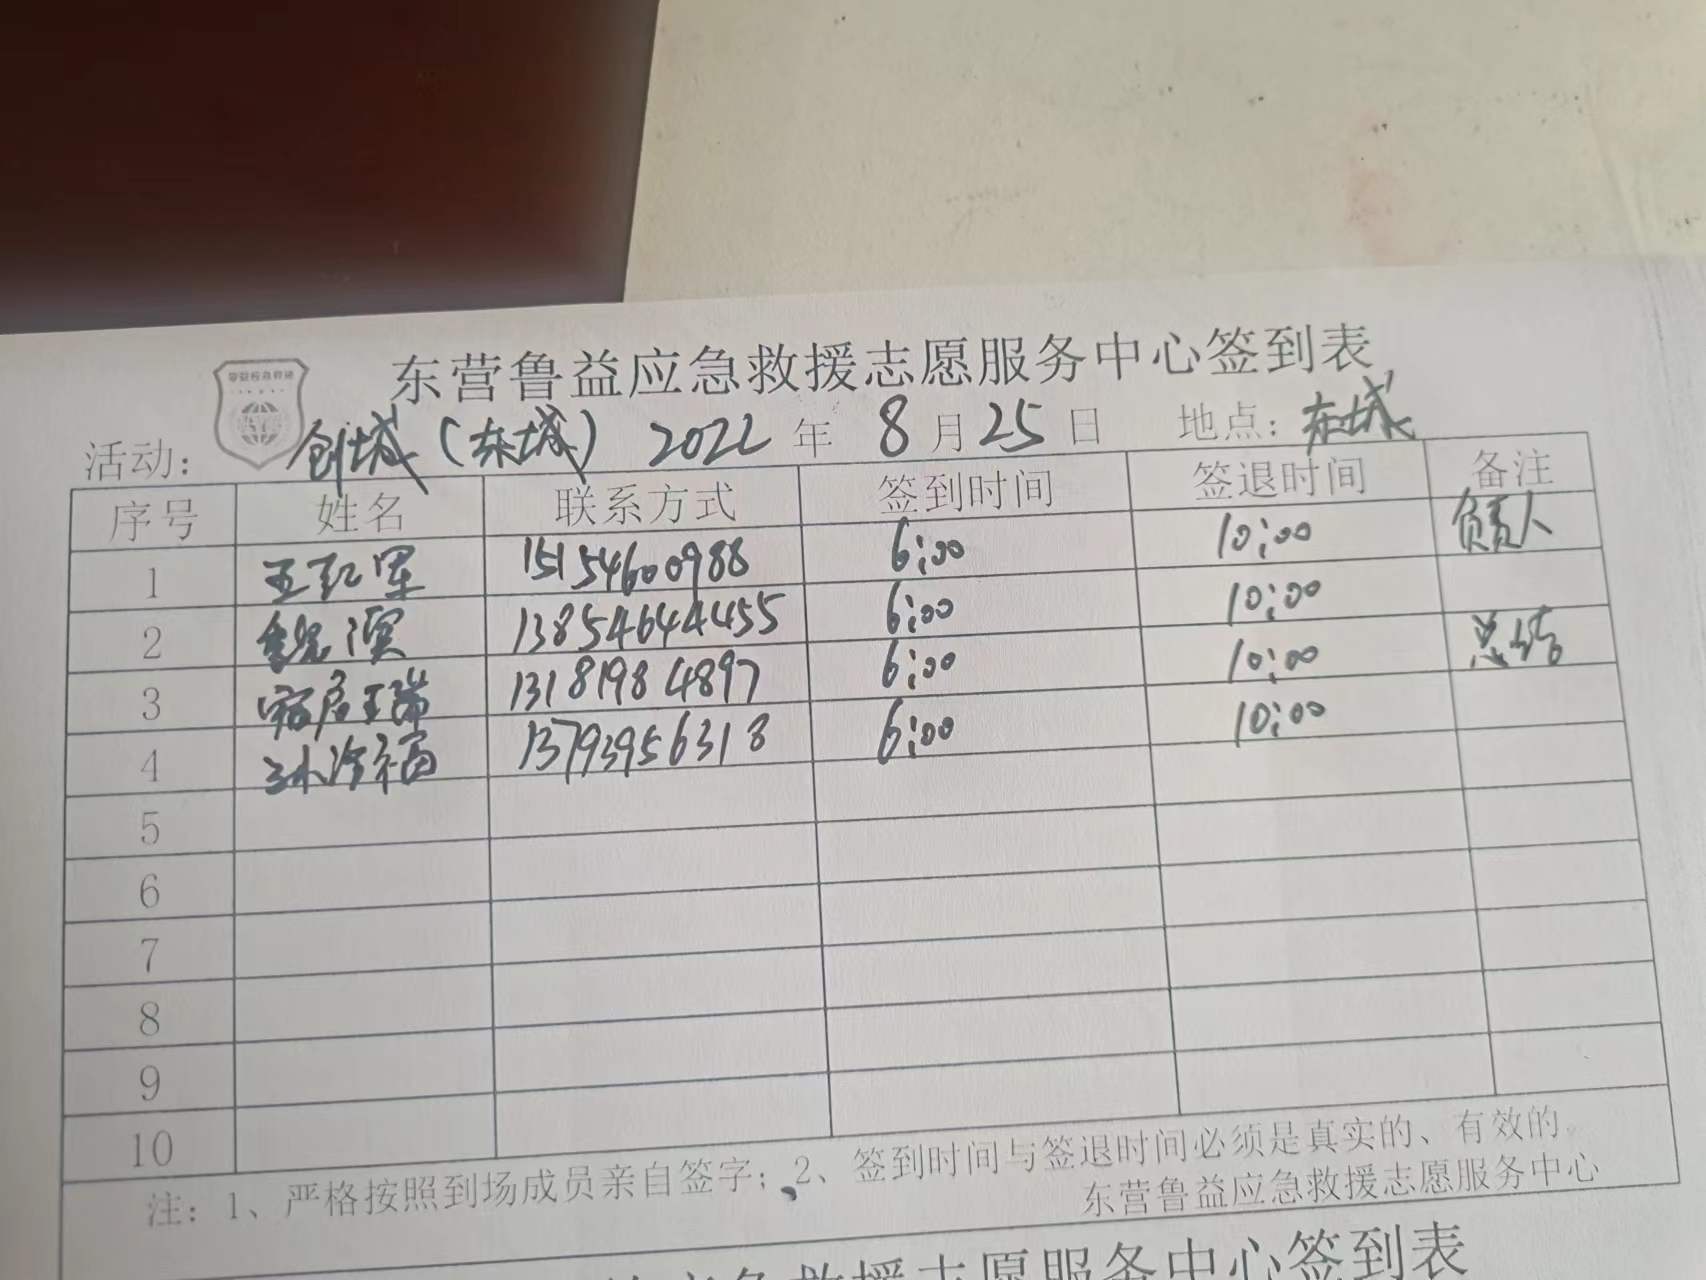 东营鲁益应急救援志愿服务中心签到表
活动: 创城(东城) 2022 年 8 月 25 日 地点: 东城
序号 姓名 联系方式 签到时间 签退时间 备注
1 王红军 15154600988 6:00 10:00 负责人
2 魏滨 13854644455 6:00 10:00
3 13181984897 6:00 10:00 总结
4 13793956318 6:00 10:00
5
6
7
8
9
10
注: 1、严格按照到场成员亲自签字; 2、签到时间与签退时间必须是真实的、有效的。
东营鲁益应急救援志愿服务中心
应急救援志愿服务中心签到表